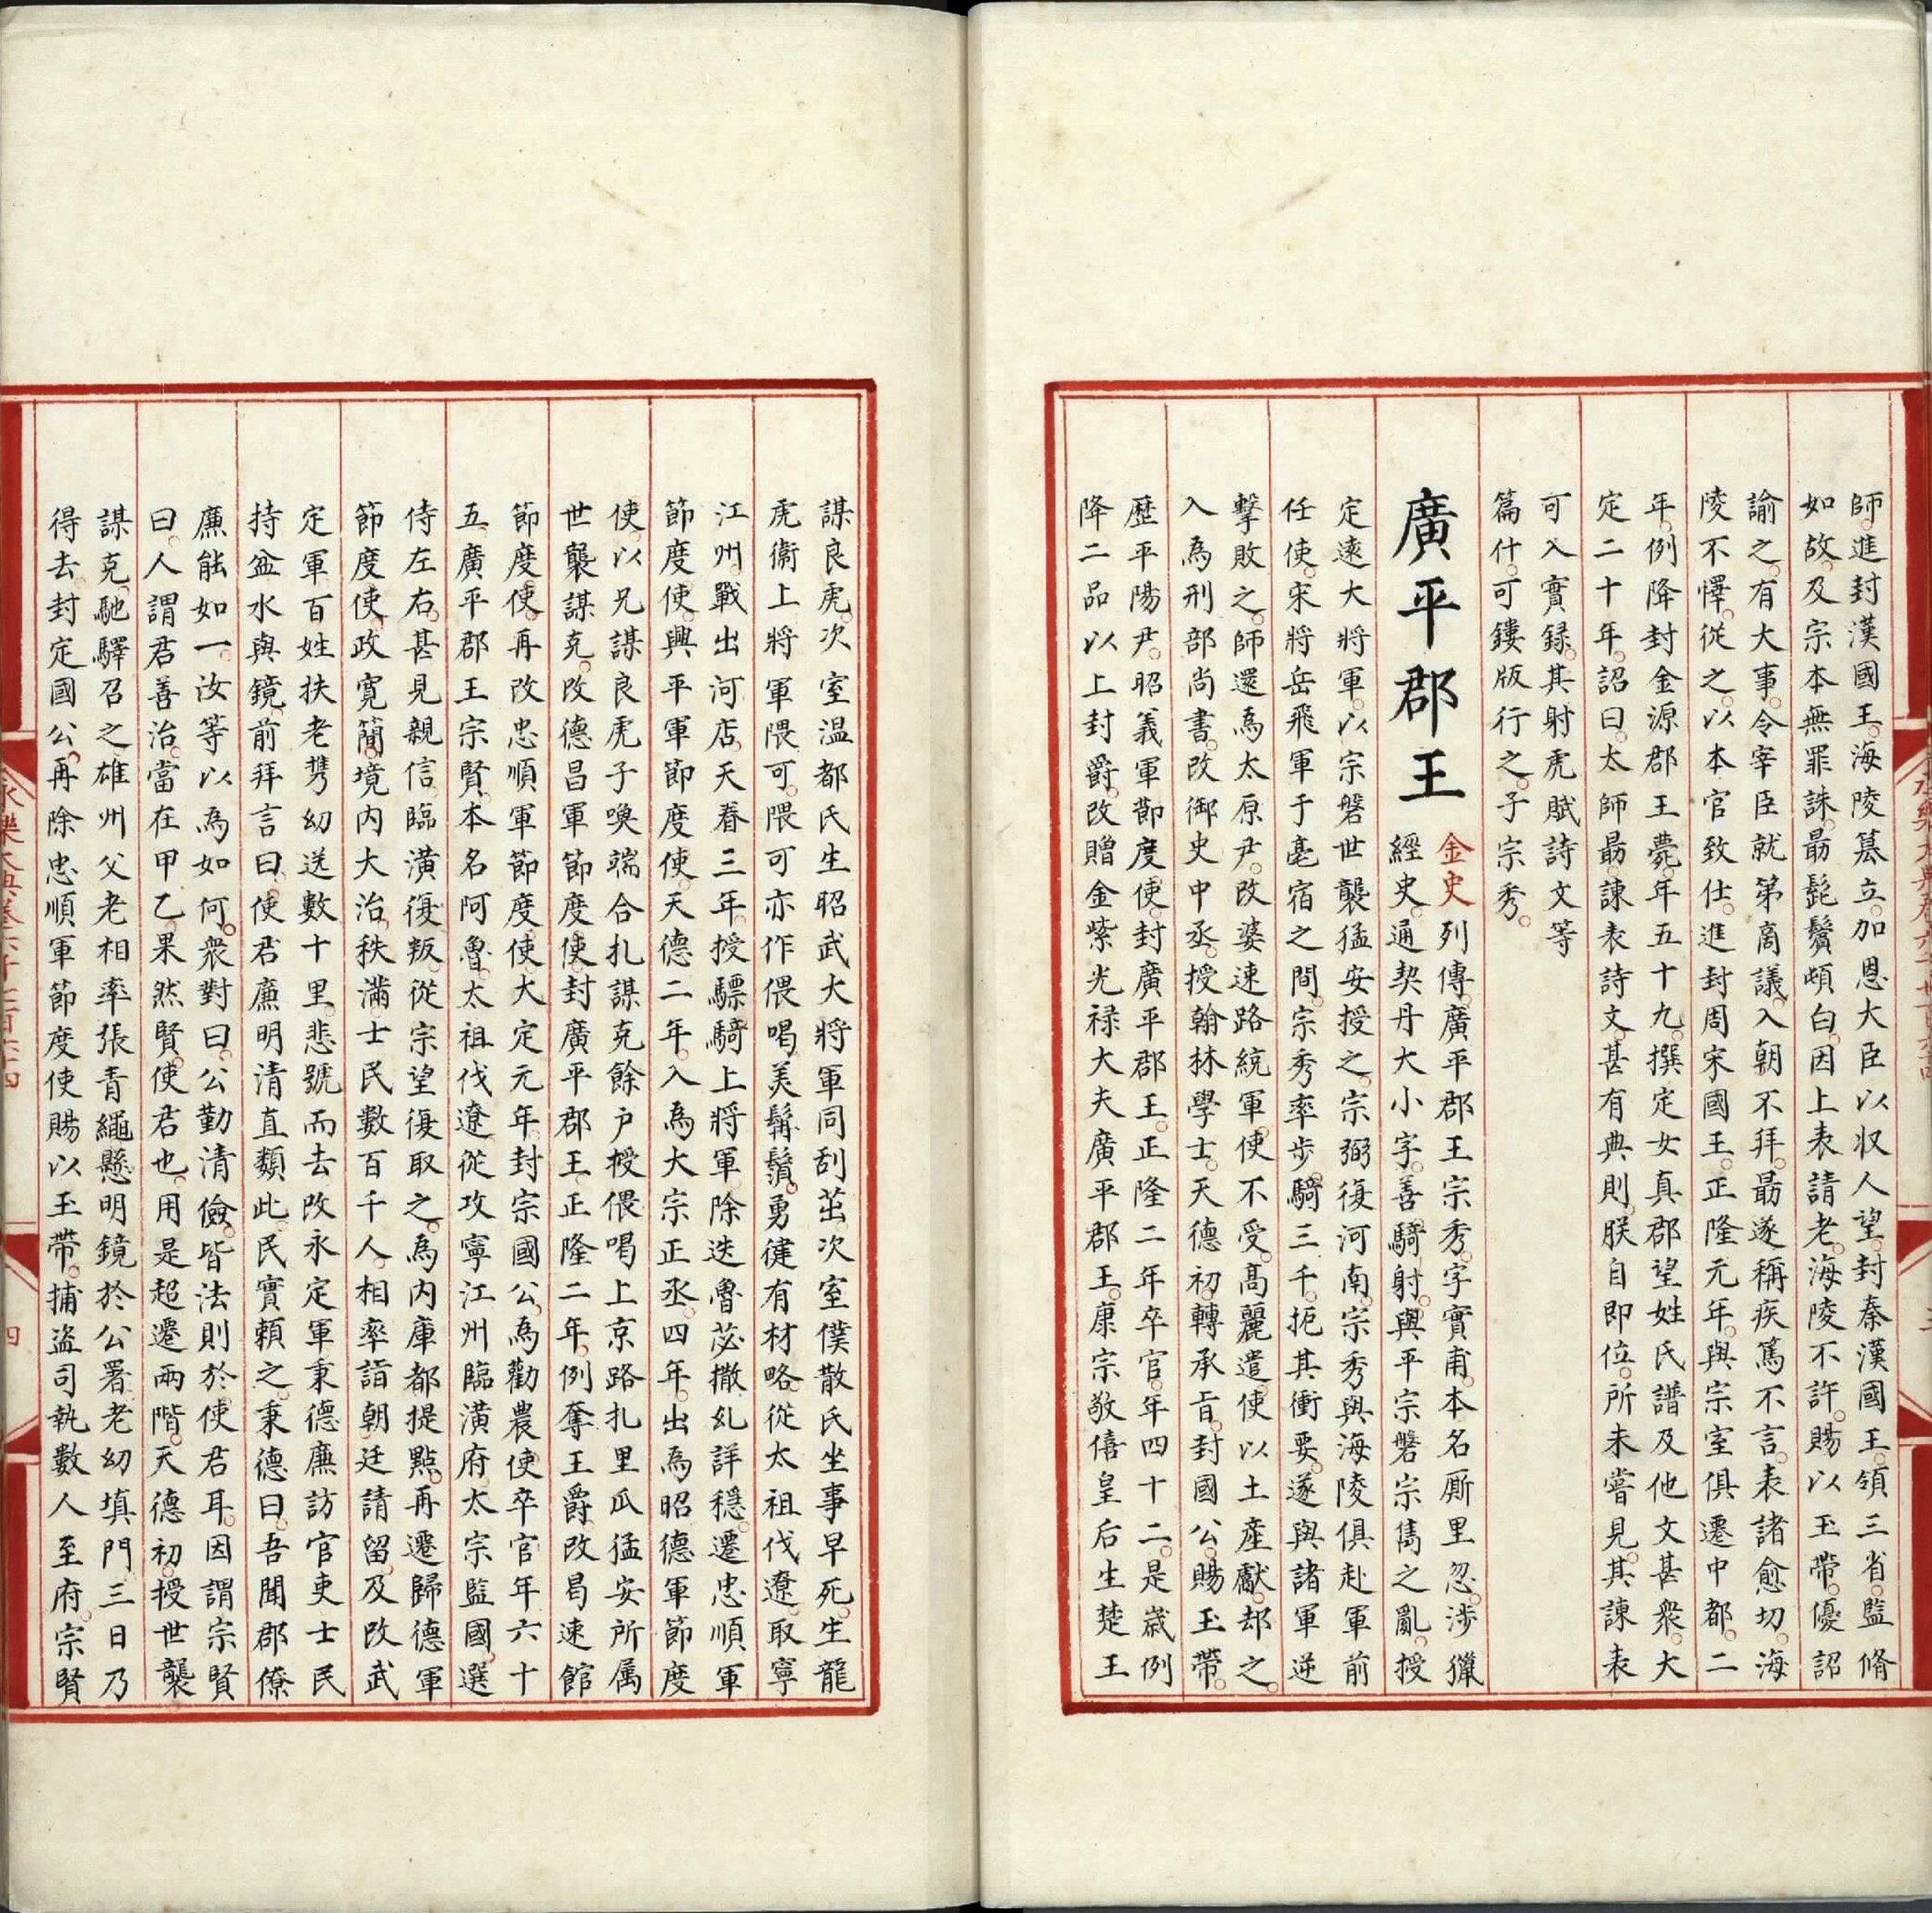 師進封漢國王海陵篡立加恩大臣以収人望封秦漢國王領三省監脩
如故及宗本無罪誅勗髭鬢頓白因上表請老海陵不許賜以玉帶優詔
諭之有大事令宰臣就第商議入朝不拜勗遂稱疾篤不言表諸愈切海
陵不懌從之以本官致仕進封周宋國王正隆元年與宗室俱遷中都二
年例降封金源郡王薨年五十九撰定女真郡望姓氏譜及他文甚衆大
定二十年詔曰太師勗諫表詩文甚有典則朕自即位所未嘗見其諫表
可入實録其射虎賦詩文等
篇什可鏤版行之子宗秀
廣平郡王
金史列傳廣平郡王宗秀字實甫本名厮里忽涉獵
經史通契丹大小字善騎射與平宗磐宗雋之亂授
定遠大將軍以宗磐世襲猛安授之宗弼復河南宗秀與海陵俱赴軍前
任使宋將岳飛軍于亳宿之間宗秀率步騎三千扼其衝要遂與諸軍逆
擊敗之師還為太原尹改婆速路統軍使不受高麗遣使以土産獻却之
入為刑部尚書改御史中丞授翰林學士天德初轉承旨封國公賜玉帶
歷平陽尹昭義軍節度使封廣平郡王正隆二年卒官年四十二是歲例
降二品以上封爵改贈金紫光禄大夫廣平郡王康宗敬僖皇后生楚王
謀良虎次室温都氏生昭武大將軍同刮茁次室僕散氏生事早死生龍
虎衞上將軍隈可隈可亦作偎喝美髯鬚勇健有材略從太祖伐遼取寧
江州戰出河店天眷三年授驃騎上將軍除迭魯苾撒糺詳穩遷忠順軍
節度使興平軍節度使天德二年入為大宗正丞四年出為昭德軍節度
使以兄謀良虎子喚端合扎謀克餘户授偎喝上京路扎里瓜猛安所属
世襲謀克改德昌軍節度使封廣平郡王正隆二年例奪王爵改曷速館
節度使再改忠順軍節度使大定元年封宗國公為勸農使卒官年六十
五廣平郡王宗賢本名阿魯太祖伐遼從攻寧江州臨潢府太宗監國選
侍左右甚見親信臨潢復叛從宗望復取之為内庫都提點再遷歸德軍
節度使政寬簡境内大治秩滿士民數百千人相率詣朝廷請留及改武
定軍百姓扶老攜幼送數十里悲號而去改永定軍秉德廉訪官吏士民
持盆水與鏡前拜言曰使君廉明清直類此民實頼之秉德曰吾聞郡僚
廉能如一汝等以為如何衆對曰公勤清儉皆法則於使君耳因謂宗賢
曰人謂君善治當在甲乙果然賢使君也用是超遷兩階天德初授世襲
謀克馳驛召之雄州父老相率張青繩懸明鏡於公署老幼填門三日乃
得去封定國公再除忠順軍節度使賜以玉帶捕盜司執數人至府宗賢